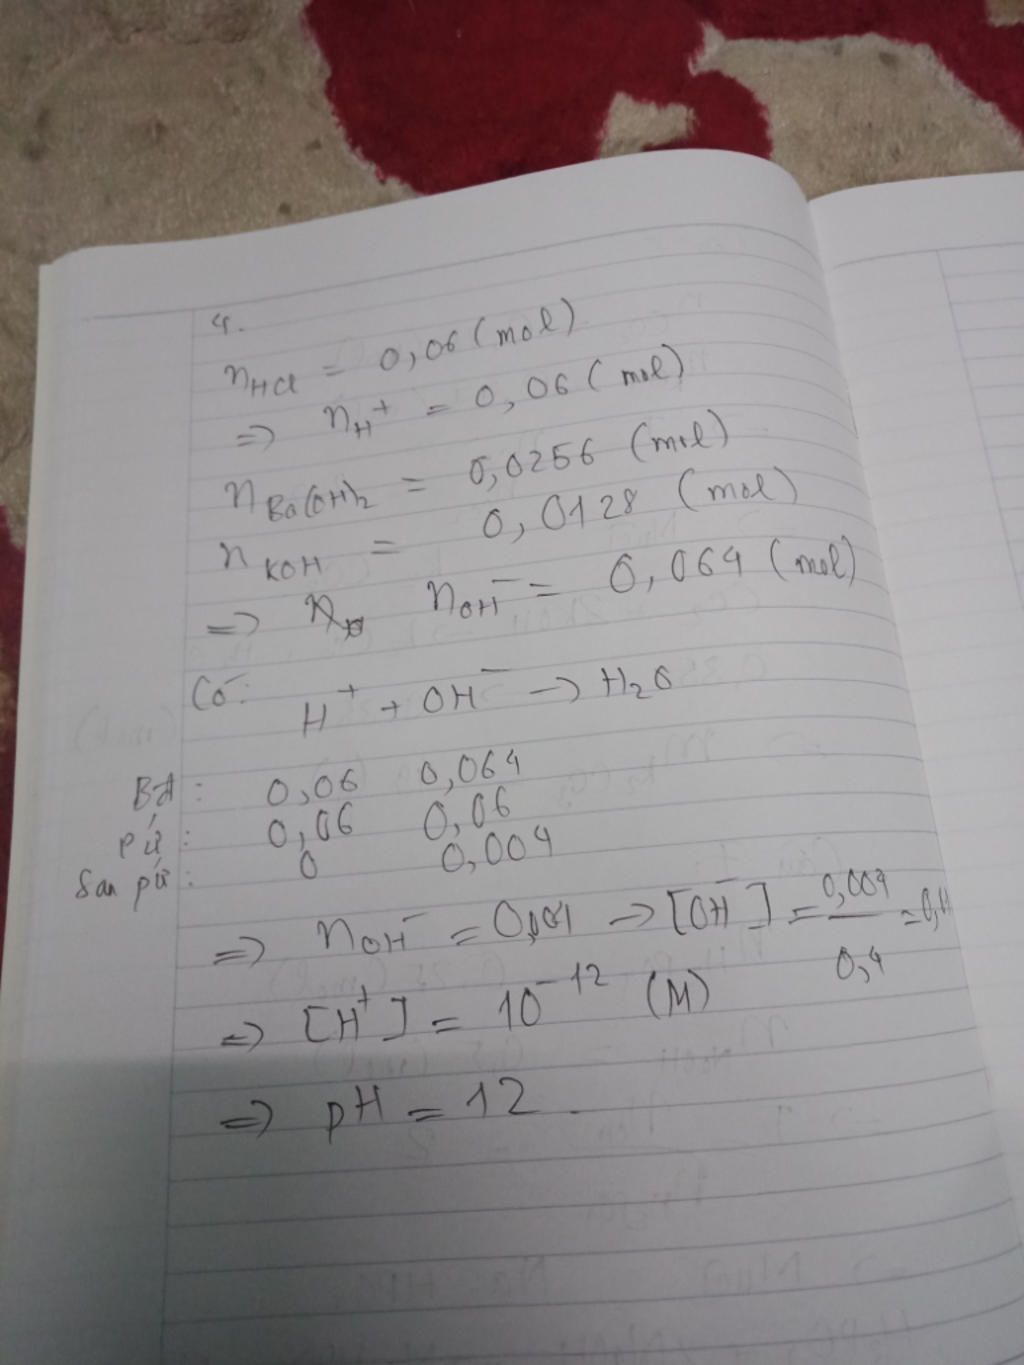 4.
nHCl = 0,06 (mol)
=> nH+ = 0,06 (mol)
nBa(OH)2 = 0,0256 (mol)
nKOH = 0,0128 (mol)
=> nOH- = 0,064 (mol)
Có: H+ + OH- -> H2O
BĐ: 0,06 0,064
pứ: 0,06 0,06
Sau pứ: 0 0,004
=> nOH- = 0,004 -> [OH-] = 0,004/0,4 =
=> [H+] = 10-12 (M)
=> pH = 12.